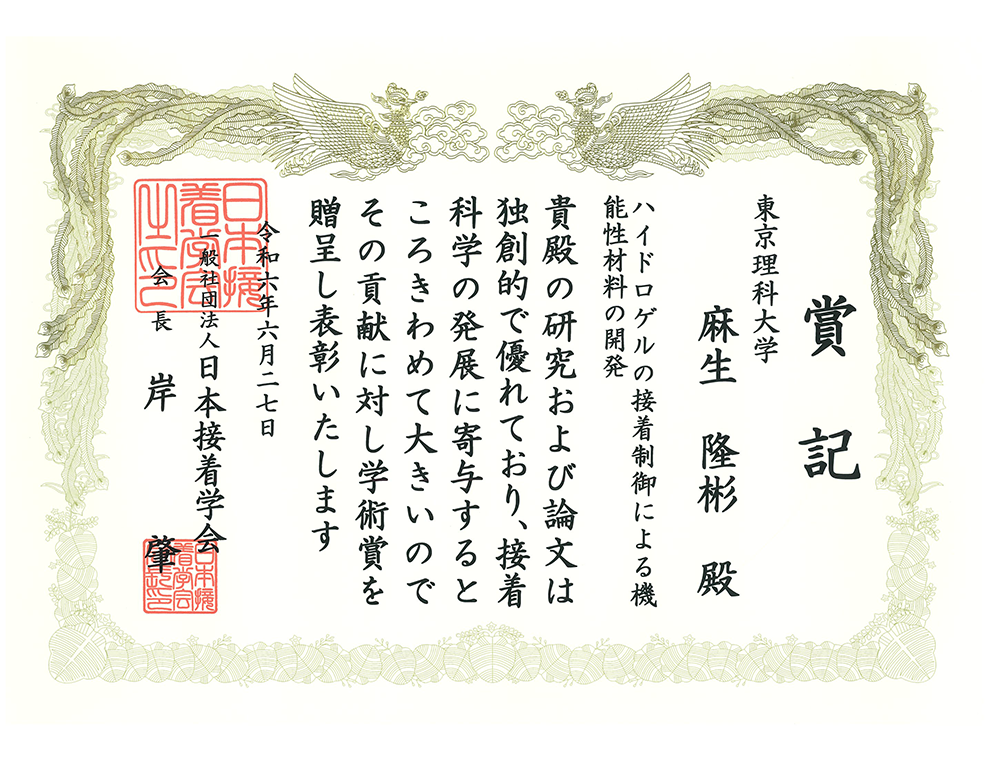 賞記
東京理科大学
麻生 隆彬 殿
ハイドロゲルの接着制御による機
能性材料の開発
貴殿の研究および論文は
独創的で優れており、接着
科学の発展に寄与すると
ころきわめて大きいので
その貢献に対し学術賞を
贈呈し表彰いたします
令和六年六月二七日
一般社団法人日本接着学会
会長 岸 肇
日本接
着学会
之印
日本接
着学会